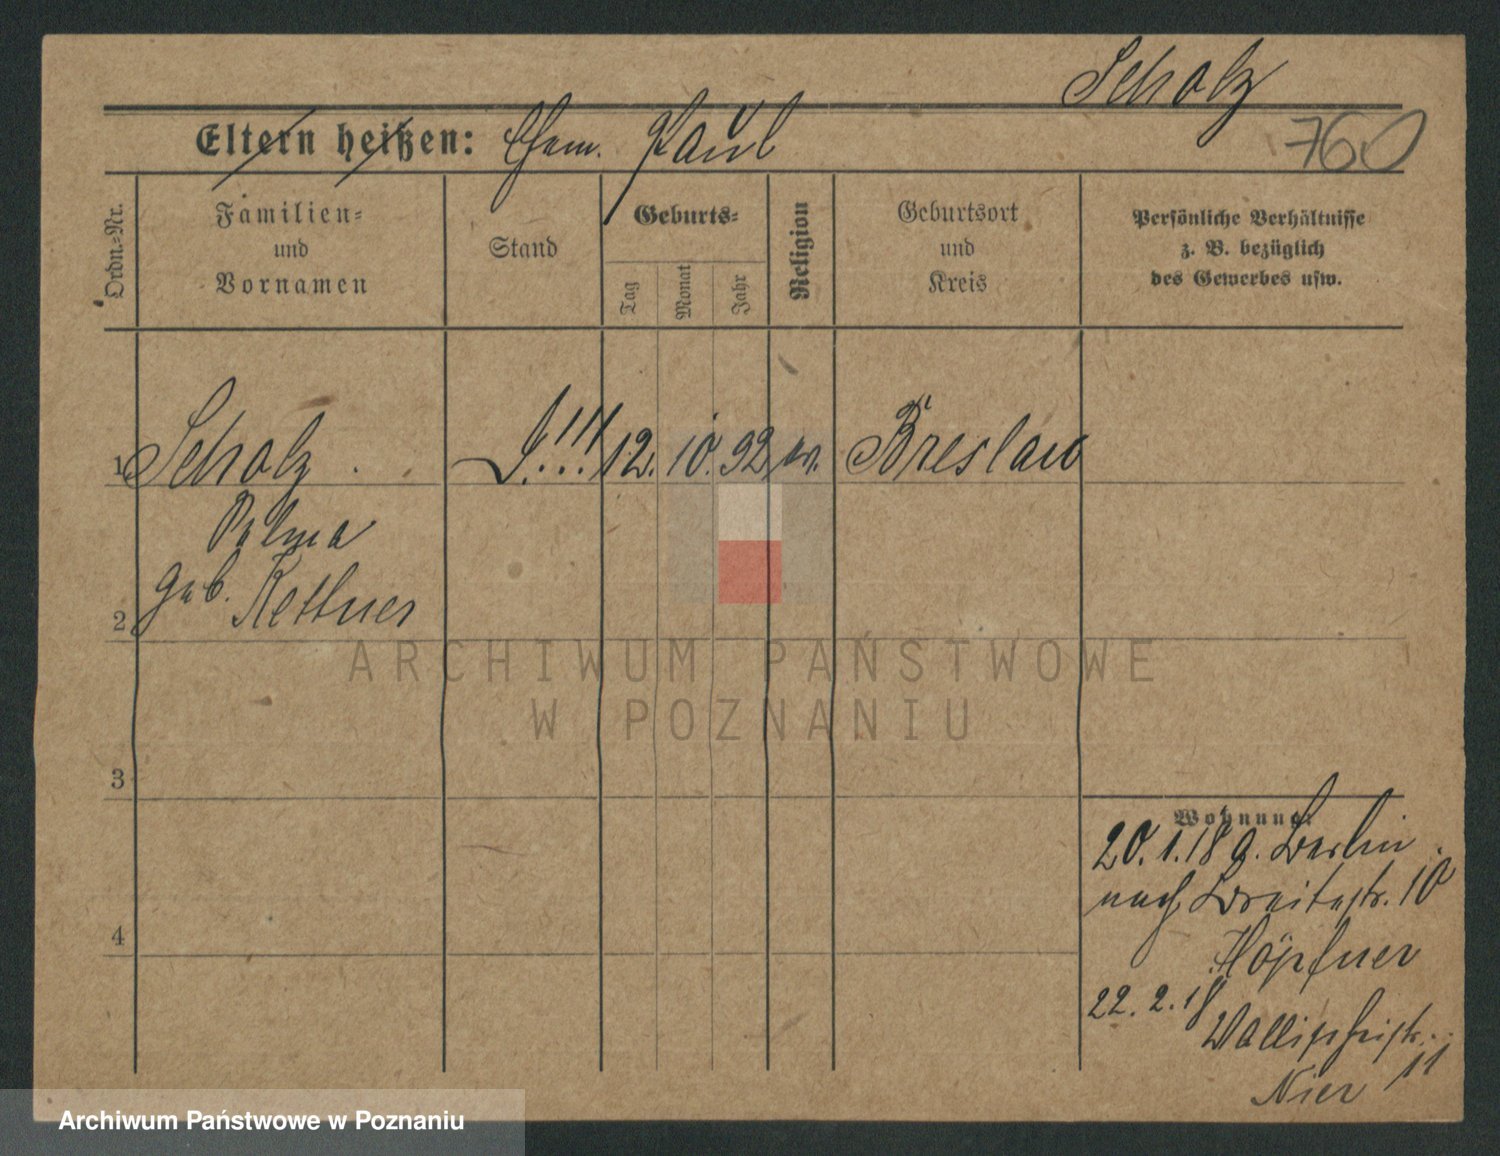 Scholz
760
Eltern heißen: Ehem. Paul
Ordn.=Nr.
Familien=
und
Vornamen
Stand
Geburts=
Tag
Monat
Jahr
Religion
Geburtsort
und
Kreis
Persönliche Verhältnisse
z. B. bezüglich
des Gewerbes usw.
1 Scholz . !!! 12. 10. 92 ev. Breslau
geb. Kettner
2
ARCHIWUM PAŃSTWOWE
W POZNANIU
3
4
Wohnung:
20. 1. 18 a. Berlin
nach Breitestr. 10
Höpfner
22. 2. 18
Wallischeistr. 11
Nier
Archiwum Państwowe w Poznaniu